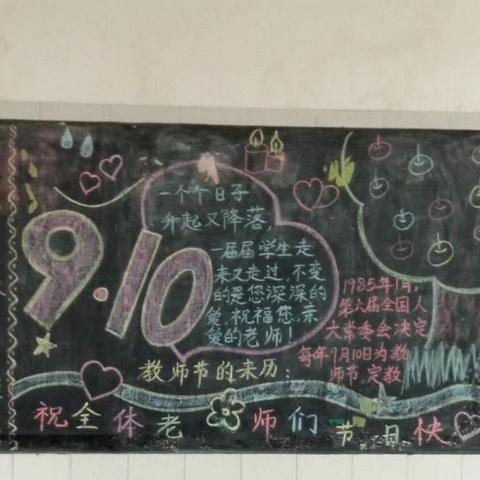 9.10
一个个日子
升起又降落,
一届届学生走
来又走过,不变
的是您深深的
爱,祝福您,亲
爱的老师!
1985年1月,
第六届全国人
大常委会决定
每年9月10日为教
师节,定教
教师节的来历:
祝全体老师们节日快